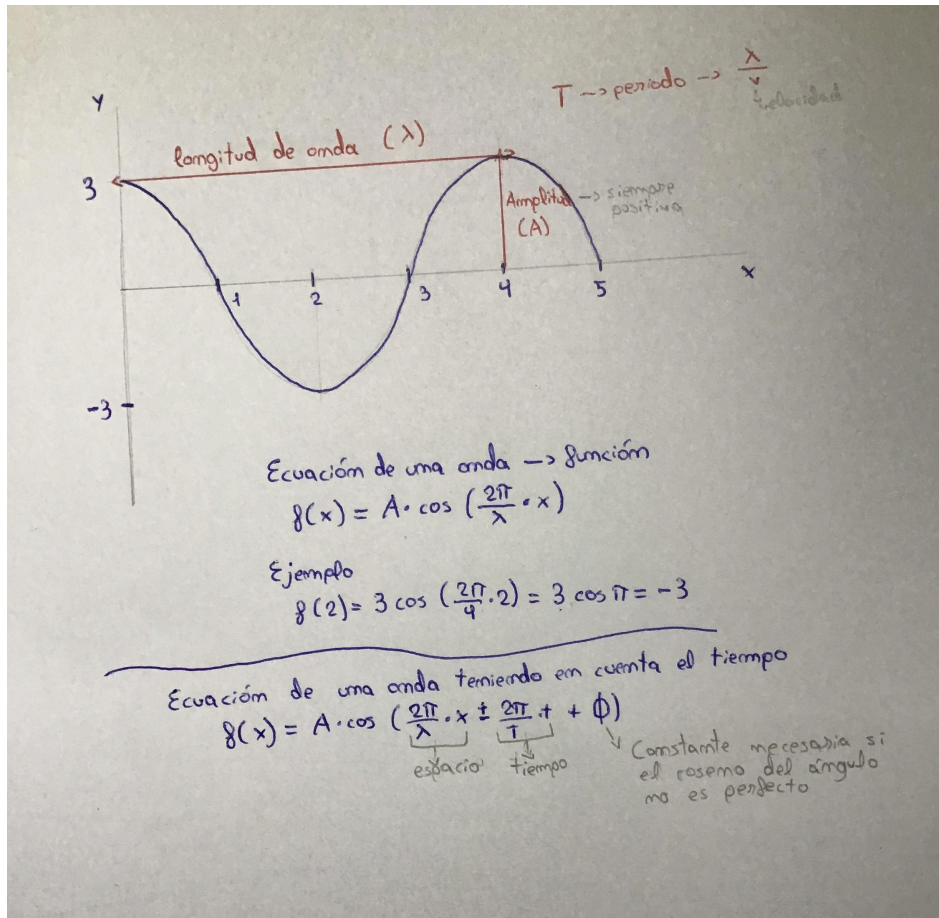 T -> periodo -> λ/v
velocidad
Y
longitud de onda (λ)
3
Amplitud -> siempre
positiva
(A)
1
2
3
4
5
x
-3
Ecuación de una onda -> función
f(x) = A · cos (2π/λ · x)
Ejemplo
f(2) = 3 cos (2π/4 · 2) = 3 cos π = -3
Ecuación de una onda teniendo en cuenta el tiempo
f(x) = A · cos (2π/λ · x ± 2π/T · t + ϕ)
espacio
tiempo
Constante necesaria si
el coseno del ángulo
no es perfecto